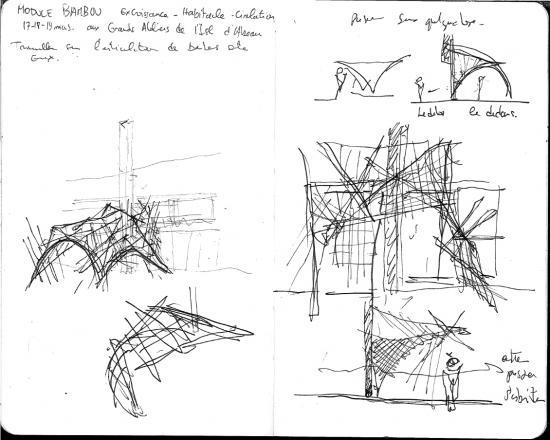 MODULE BAMBOU Excroissance - Habitacle - Circulation
17-18-19 mars. aux Grands Ateliers de l'Isle d'Abeau
Travailler sur l'articulation de
creux.
poser sur quelque chose.
Le dehors le dedans.
être
pousser
s'abriter